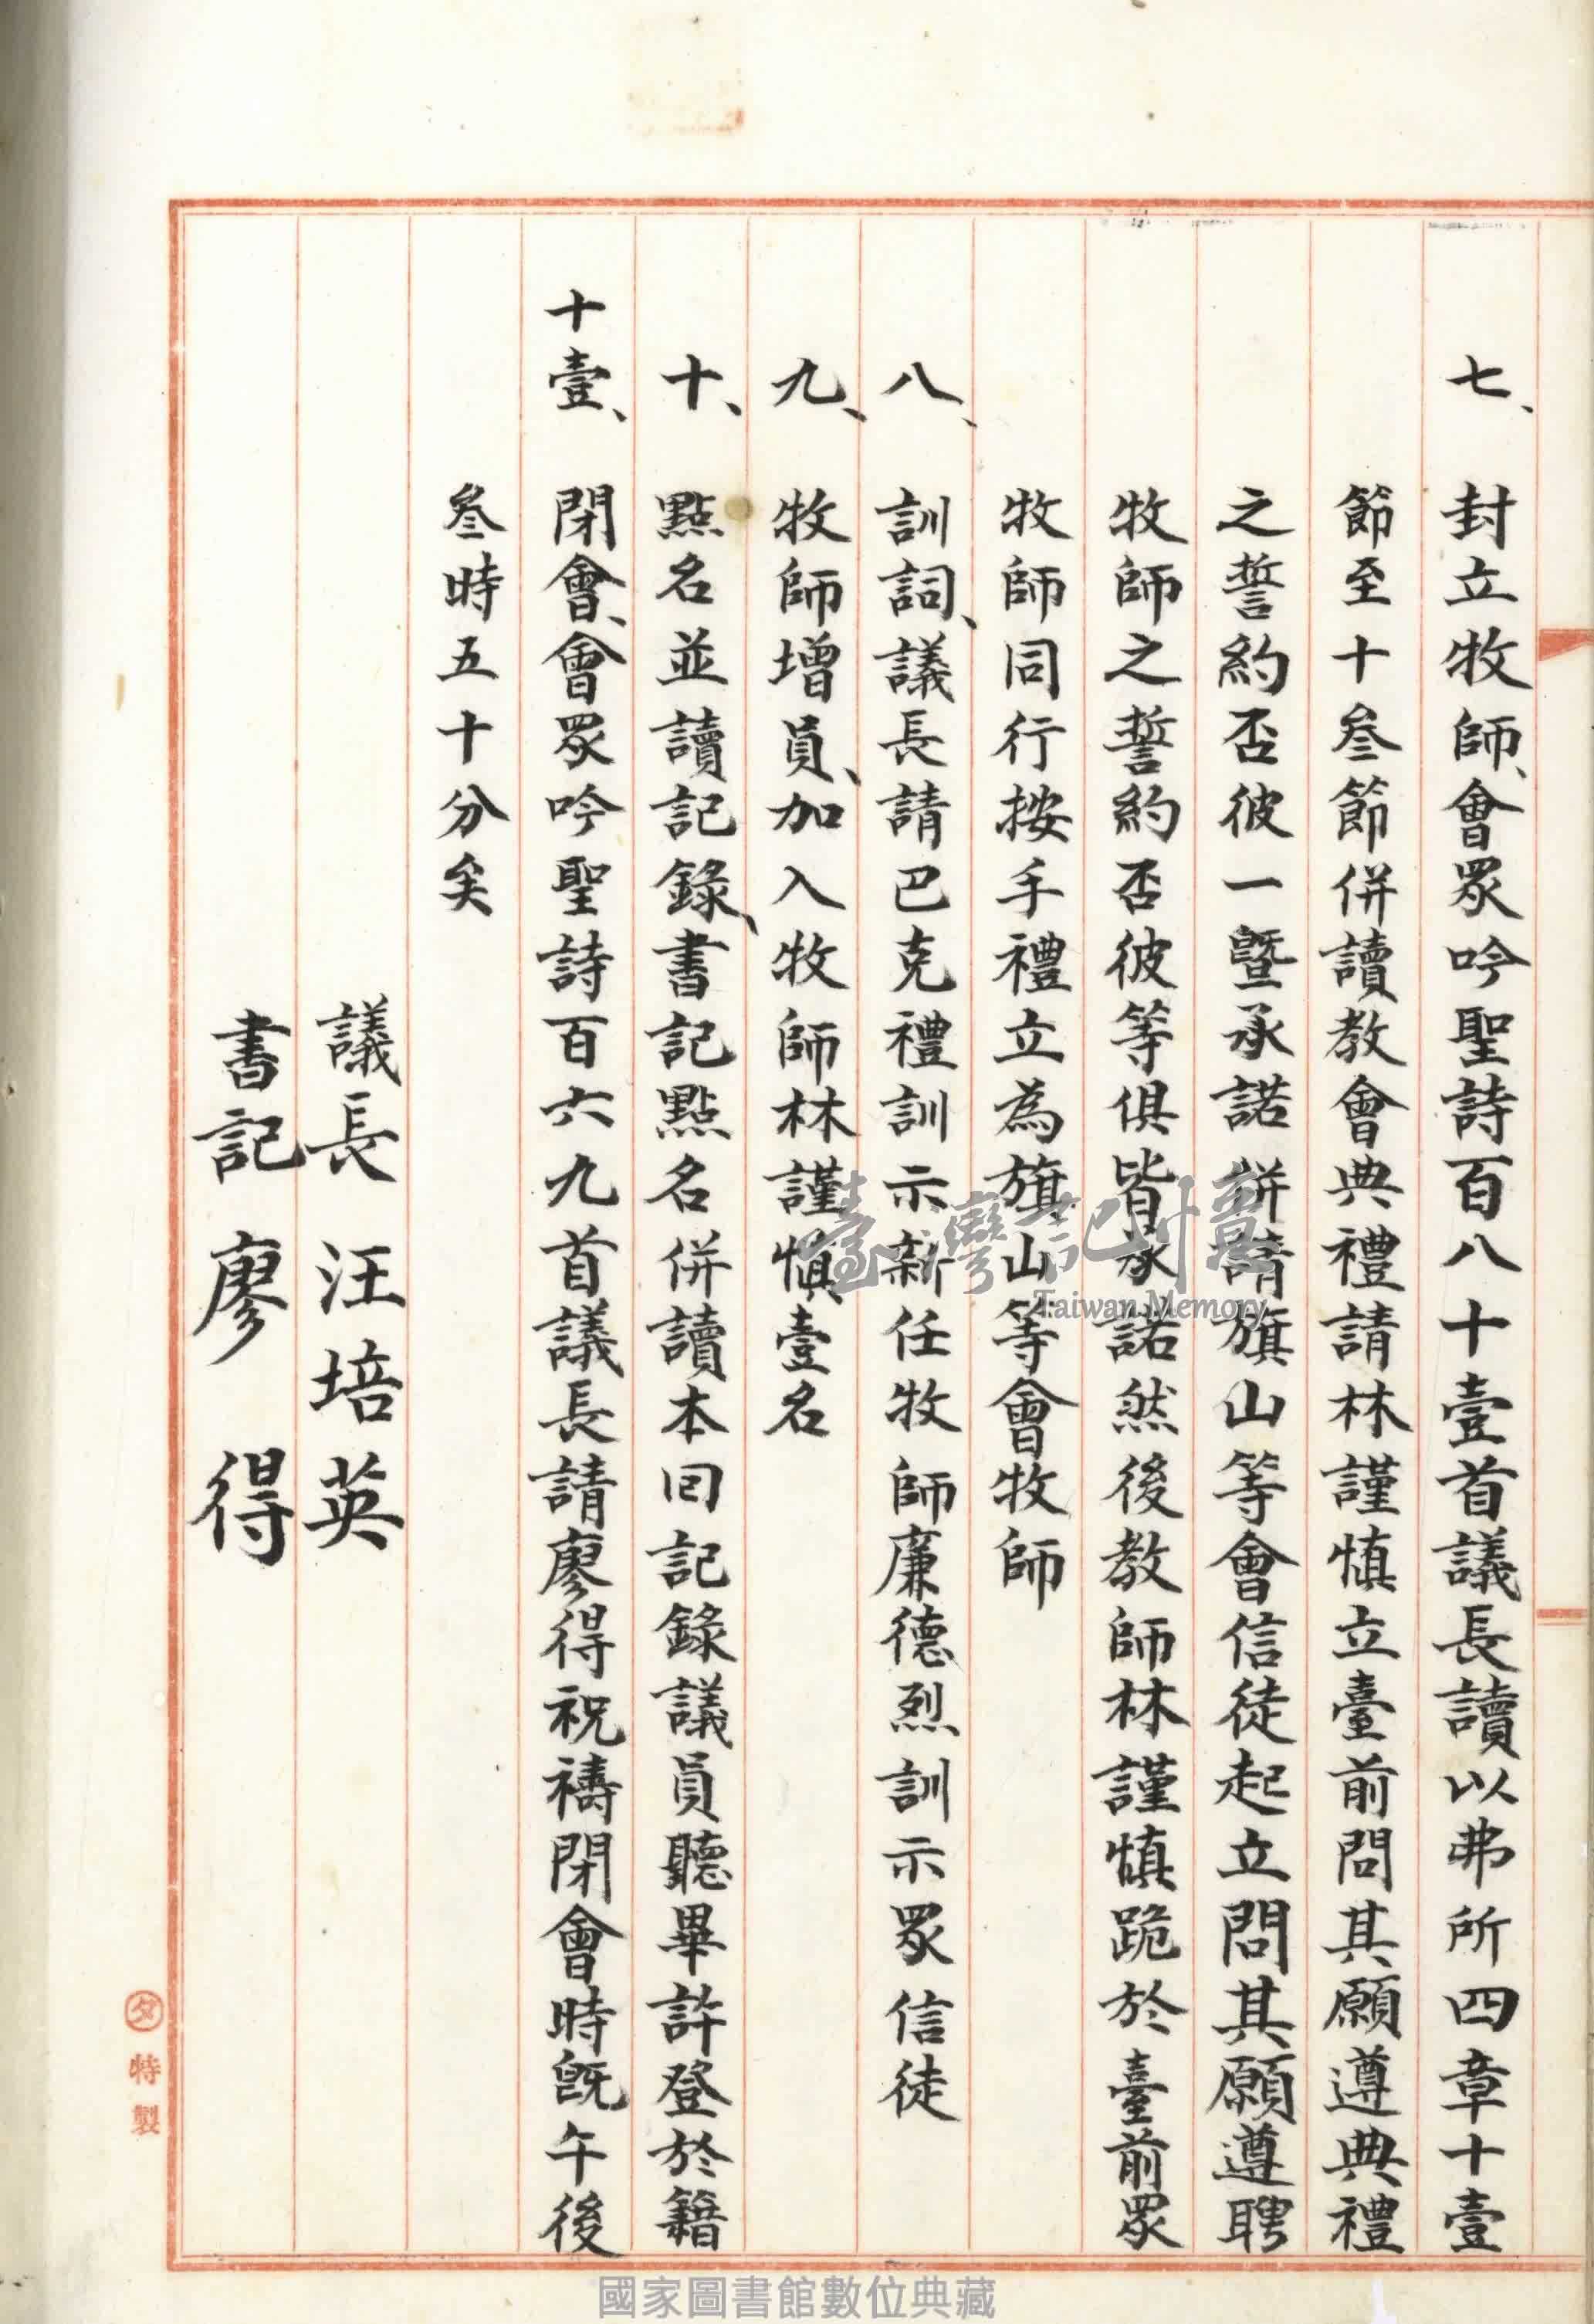 七、封立牧師、會眾吟聖詩百八十壹首議長讀以弗所四章十壹
節至十叁節併讀教會典禮請林謹慎立臺前問其願遵典禮
之誓約否彼一暨承諾併請旗山等會信徒起立問其願遵聘
牧師之誓約否彼等俱皆承諾然後教師林謹慎跪於臺前眾
牧師同行按手禮立為旗山等會牧師
八、訓詞、議長請巴克禮訓示新任牧師廉德烈訓示眾信徒
九、牧師增員、加入牧師林謹慎壹名
十、點名並讀記錄、書記點名併讀本囘記錄議員聽畢許登於籍
十壹、閉會、會眾吟聖詩百六九首議長請廖得祝禱閉會時既午後
叁時五十分矣
議長 汪培英
書記 廖得
タ特製
臺灣記憶
Taiwan Memory
國家圖書館數位典藏